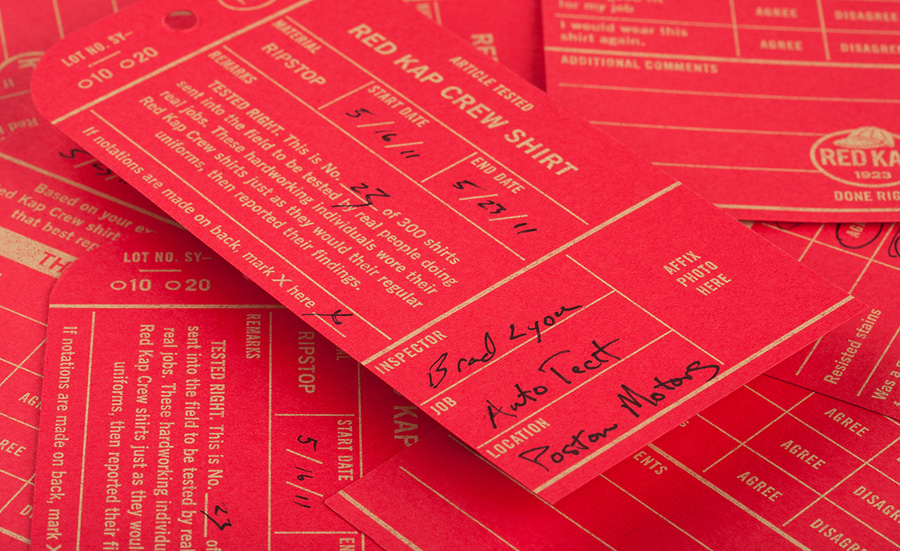 LOT NO. SY–
○10 ○20
ARTICLE TESTED
RED KAP CREW SHIRT
MATERIAL
RIPSTOP
START DATE
5/16/11
END DATE
5/23/11
REMARKS
TESTED RIGHT. This is No. 23 of 300 shirts
sent into the field to be tested by real people doing
real jobs. These hardworking individuals wore their
Red Kap Crew shirts just as they would their regular
uniforms, then reported their findings.
If notations are made on back, mark X here X
INSPECTOR
Brad Lyon
JOB
Auto Tech
LOCATION
Poston Motors
AFFIX
PHOTO
HERE
for my job
AGREE
DISAGREE
I would wear this
shirt again.
AGREE
DISAGREE
ADDITIONAL COMMENTS
RED KA
1923
DONE RIG
Based on your ex
d Kap Crew shirt
that best rep
TH
LOT NO. SY–
○10 ○20
RIPSTOP
START DATE
5/16/11
REMARKS
TESTED RIGHT. This is No. 23 of
sent into the field to be tested by real
real jobs. These hardworking individu
Red Kap Crew shirts just as they wou
uniforms, then reported their fi
If notations are made on back, mark X
KAP
ENTS
AGREE
AGREE
AGREE
DISAGREE
DISAGREE
DISAGREE
Resisted stains
Was a